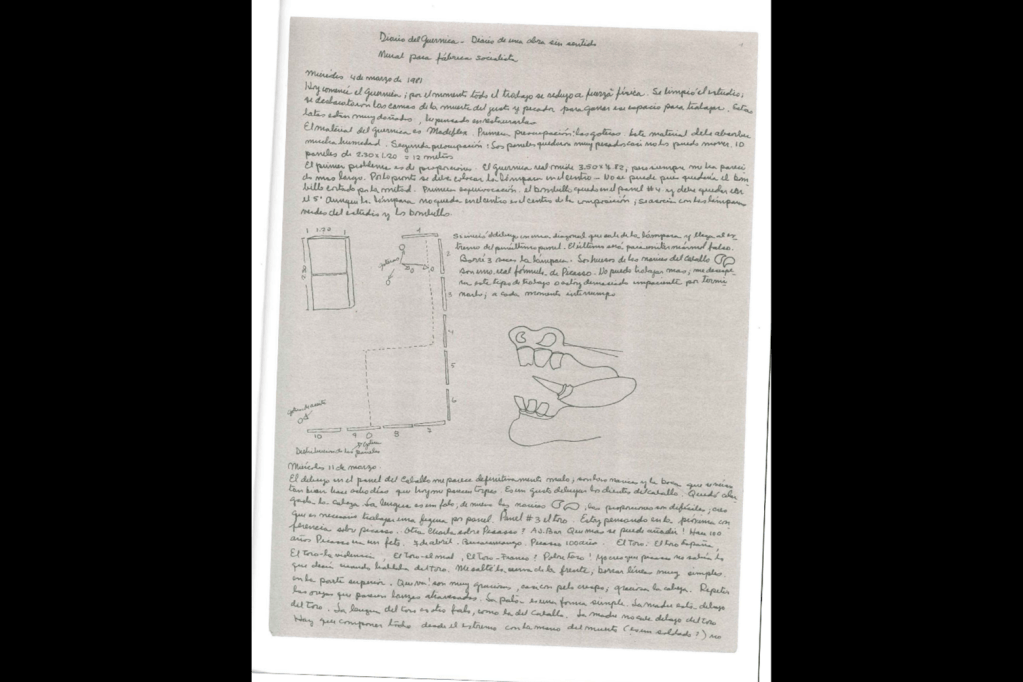 Diario del Guernica - Diario de una obra sin sentido
Mural para fábrica socialista
Miércoles 4 de marzo de 1981
Hoy comencé el Guernica; por el momento todo el trabajo se redujo a fuerza física. Se limpió el estudio;
se desbarataron las camas de la muerte del justo y pecador para ganar ese espacio para trabajar. Estas
latas están muy dañadas,
El material del Guernica es Madeflex. Primera preocupación: las goteras. Este material debe absorber
mucha humedad. Segunda preocupación: Los paneles quedaron muy pesados casi no los puedo mover. 10
paneles de 2.30 x 1.20 = 12 metros
El primer problema es de proporciones. El Guernica real mide 3.50 x 7.82, pero siempre me ha pareci-
do mas largo. Por lo pronto se debe colocar la lámpara en el centro - No se puede pues quedaría el bom-
billo cortado por la mitad. Primera equivocación. el bombillo queda en el panel #4 y debe quedar en
el 5º Aunque la lámpara no quede en el centro es el centro de la composición; se asocia con las lámparas
verdes del estudio y los bombillos.
1 1.20 1
1
2
3
4
5
6
7
8
9
10
Se inició el dibujo con una diagonal que sale de la lámpara y llega al ex-
tremo del penúltimo panel. El último será para
Borré 3 veces la lámpara. Los huecos de las narices del caballo
son una real fórmula de Picasso. No puedo trabajar mas; me desespe-
ra este tipo de trabajo o estoy demasiado impaciente por termi-
narlo; a cada momento interrumpo
Distribución de los paneles
Miércoles 11 de marzo.
El dibujo en el panel del caballo me parece definitivamente malo; son las narices y la boca que veía
tan bien hace ocho días que hoy me parecen torpes. Es un gusto dibujar los dientes del caballo. Quedó
la cabeza. La lengua es un falo, de nuevo las narices, las proporciones son difíciles; creo
que es necesario trabajar una figura por panel. Panel #3 el toro. Estoy pensando en la próxima con-
ferencia sobre Picasso. Otra charla sobre Picasso? Que mas se puede añadir! Hace 100
años Picasso era un feto. 9 de abril. Bucaramanga. Picasso 100 años. El Toro. El toro España
El Toro-la violencia, El toro-el mal, El Toro-Franco? Pobre toro! Yo creo que Picasso no sabía lo
que decía cuando hablaba del toro. Me salté la de la frente, borrar líneas muy simples
en la parte superior. Que va! son muy graciosas, casi con pelo crespo, graciosa la cabeza. Repetir
las orejas que parecen La pata es una forma simple. La madre está debajo
del toro. La lengua del toro es otro falo, como la del caballo. La madre no cabe debajo del toro
Hay que componer todo desde el extremo con la mano del muerto (es un soldado?) no